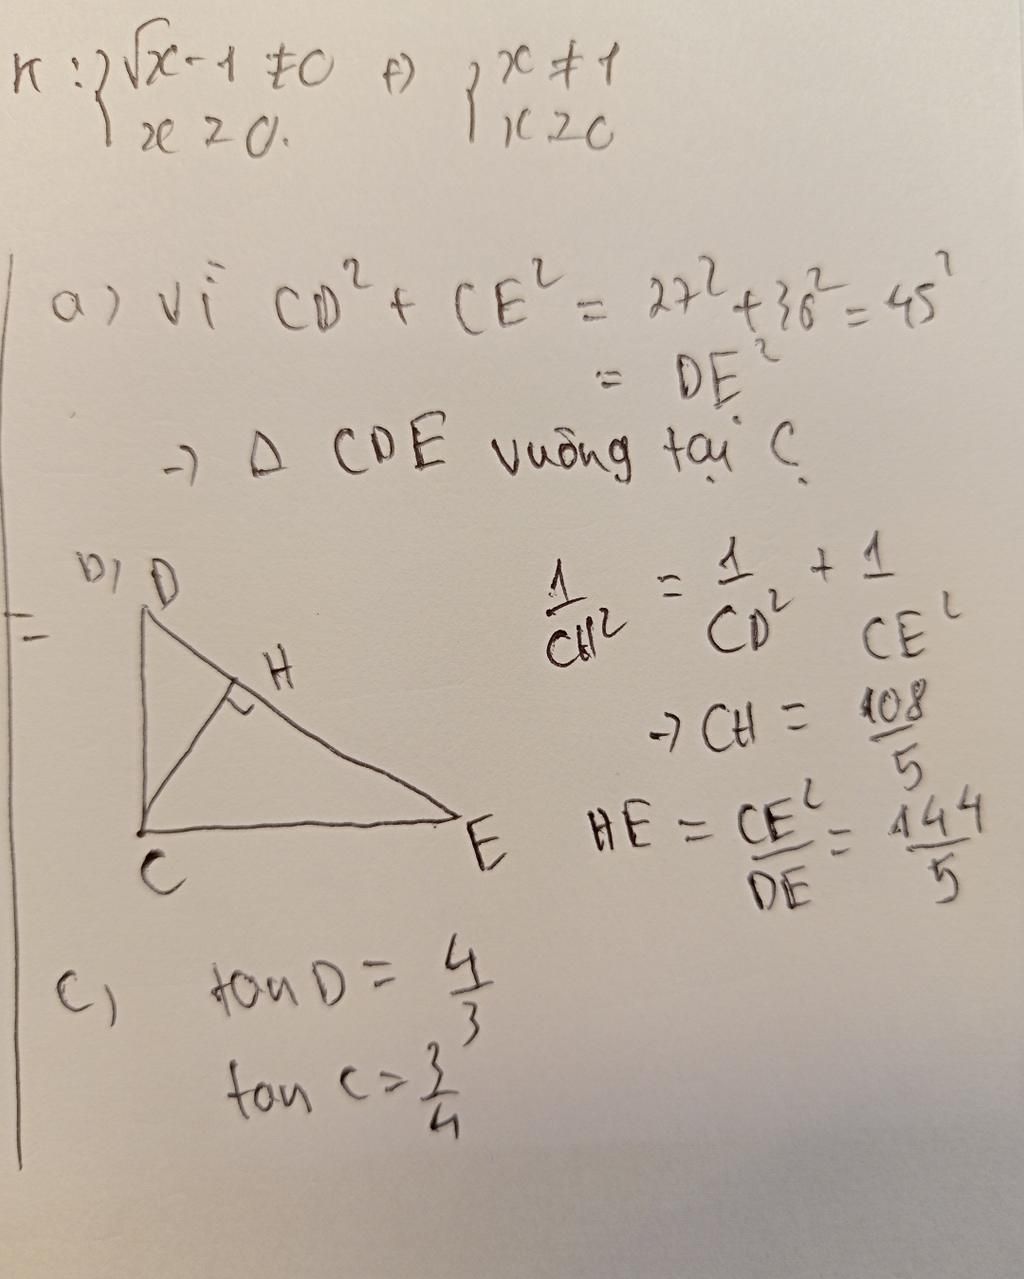 K : { √x - 1 ≠ 0 ⇔ { x ≠ 1
x ≥ 0. x ≥ 0
a) Vì CD² + CE² = 27² + 36² = 45²
= DE²
→ Δ CDE vuông tại C.
b) D
H
C
E
1/CH² = 1/CD² + 1/CE²
→ CH = 108/5
HE = CE²/DE = 144/5
=
c) tan D = 4/3
tan C = 3/4